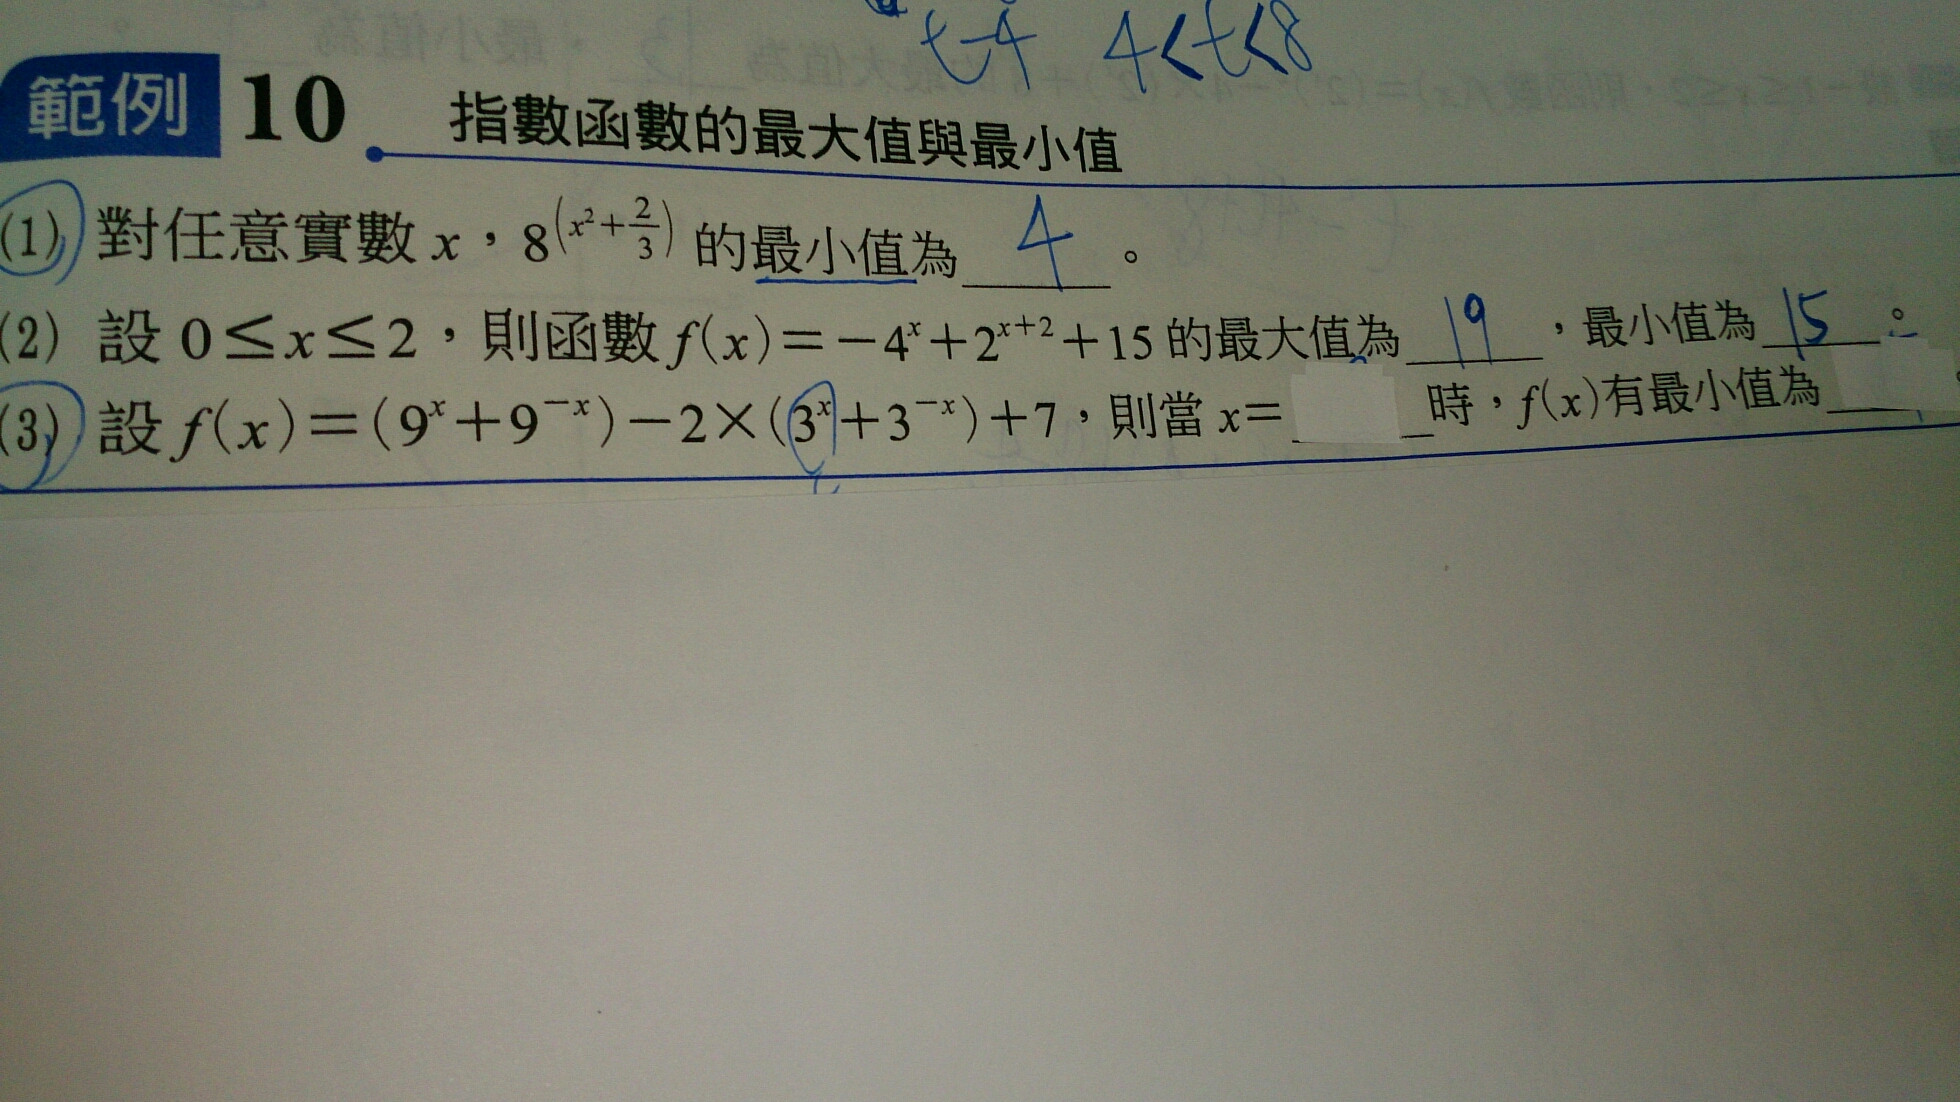 t-4 4<t<8
範例 10 指數函數的最大值與最小值
(1) 對任意實數 x，8^(x²+2/3) 的最小值為 4 。
(2) 設 0≤x≤2，則函數 f(x)=-4^x+2^(x+2)+15 的最大值為 19 ，最小值為 15 。
(3) 設 f(x)=(9^x+9^(-x))-2×(3^x+3^(-x))+7，則當 x=____時，f(x)有最小值為____。